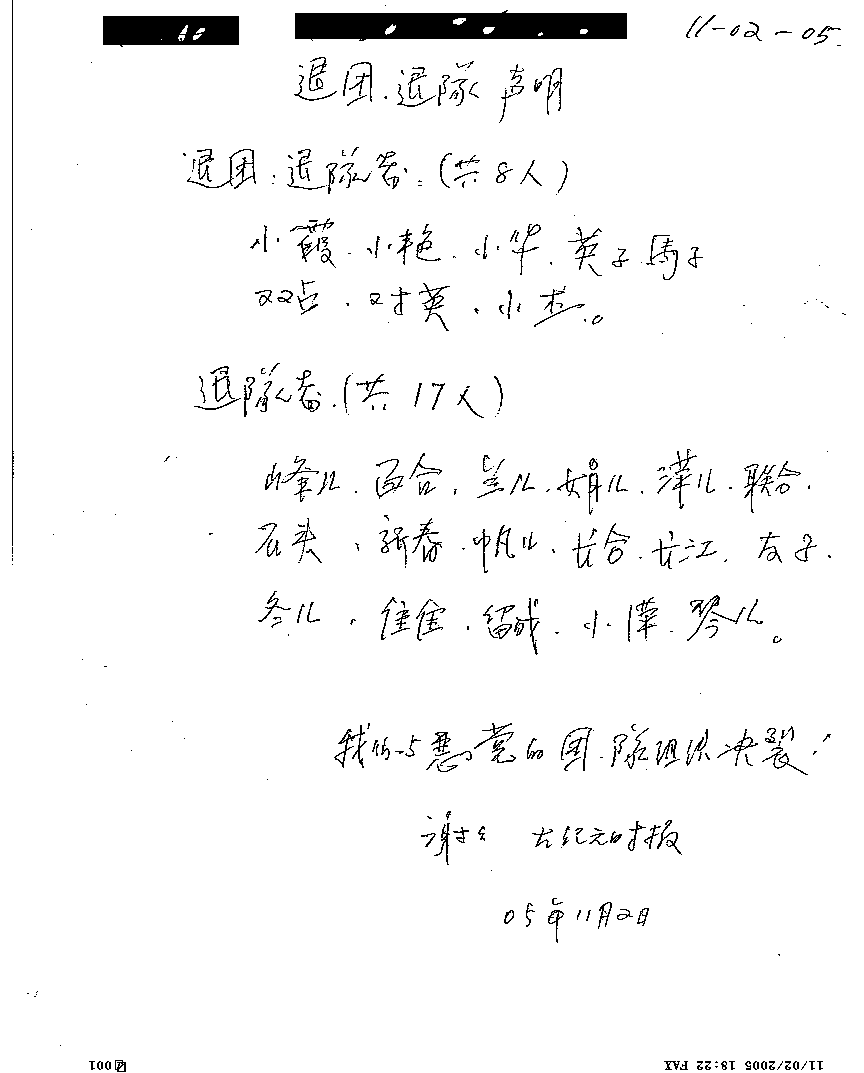 11-02-05
退团.退隊声明
退团.退隊者:(共8人)
小霞.小艳.小华.英子.馬子
双占.对英.小杰。
退隊者.(共17人)
峰儿.百合.兰儿.娟儿.萍儿.联合.
石头.新春.帆儿.长合.长江.友子.
冬儿.佳佳.留成.小萍.琴儿。
我们与恶党的团.隊组织决裂!
谢谢 大纪元时报
05年11月2日
11/02/2005 18:22 FAX
001